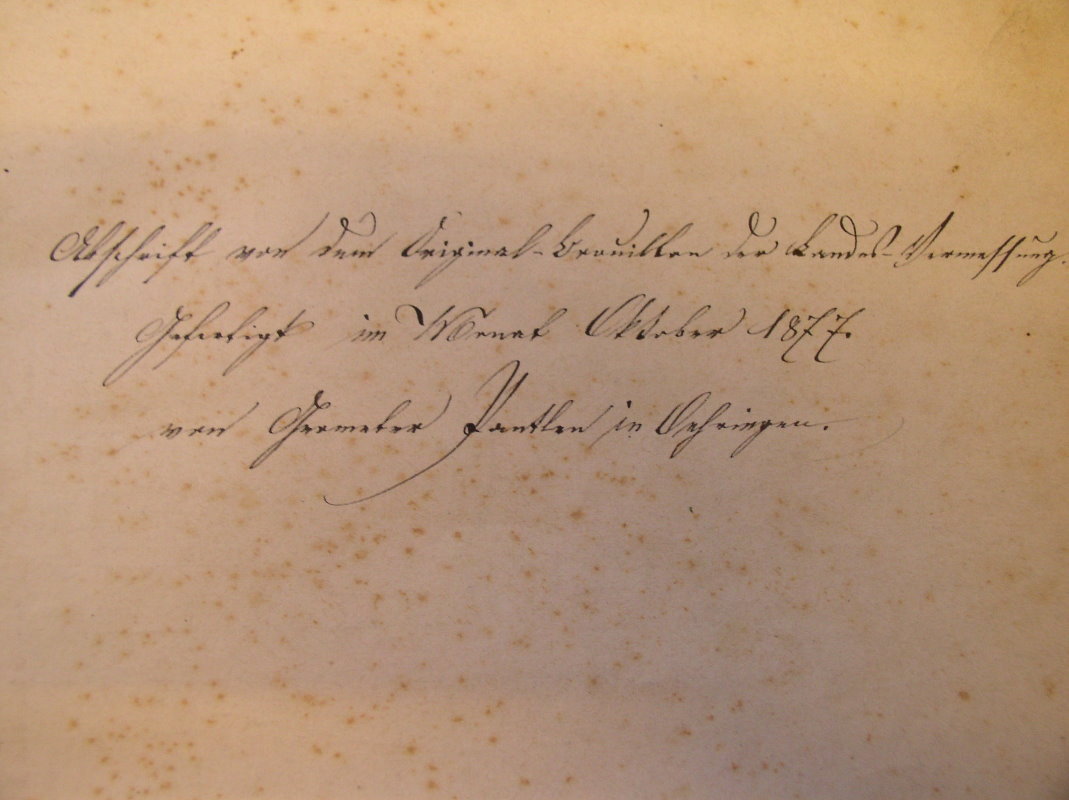 Abschrift von dem Original-Brouillon der Landes-Vermessung.
Gefertigt im Monat Oktober 1877.
von Geometer Pantlen in Oehringen.